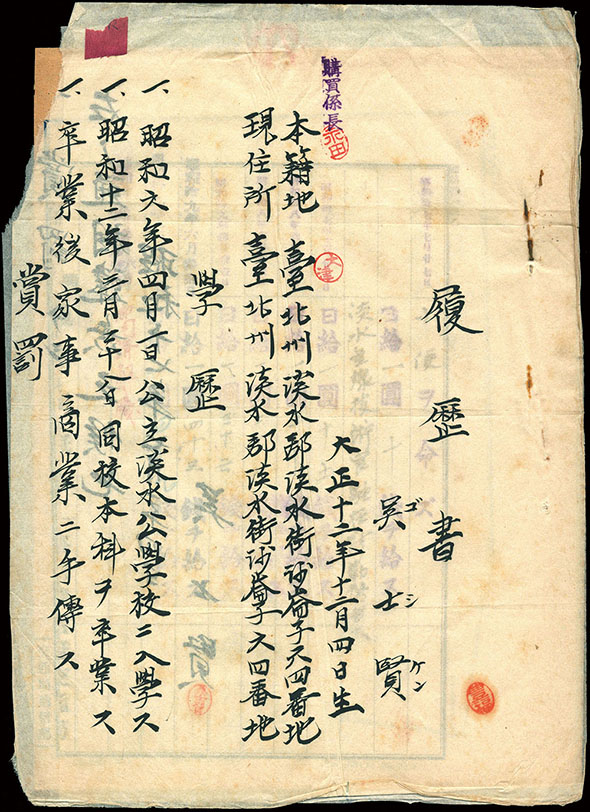 履歷書
吳士賢
ゴ シ ケン
大正十二年十二月四日生
本籍地 臺北州淡水郡淡水街沙崙子六四番地
現住所 臺北州淡水郡淡水街沙崙子六四番地
購買係長
永田
大津
學歷
一、昭和六年四月一日公立淡水公學校ニ入學ス
一、昭和十二年三月二十八日同校本科ヲ卒業ス
一、卒業後家事商業ニ手傳ス
賞罰